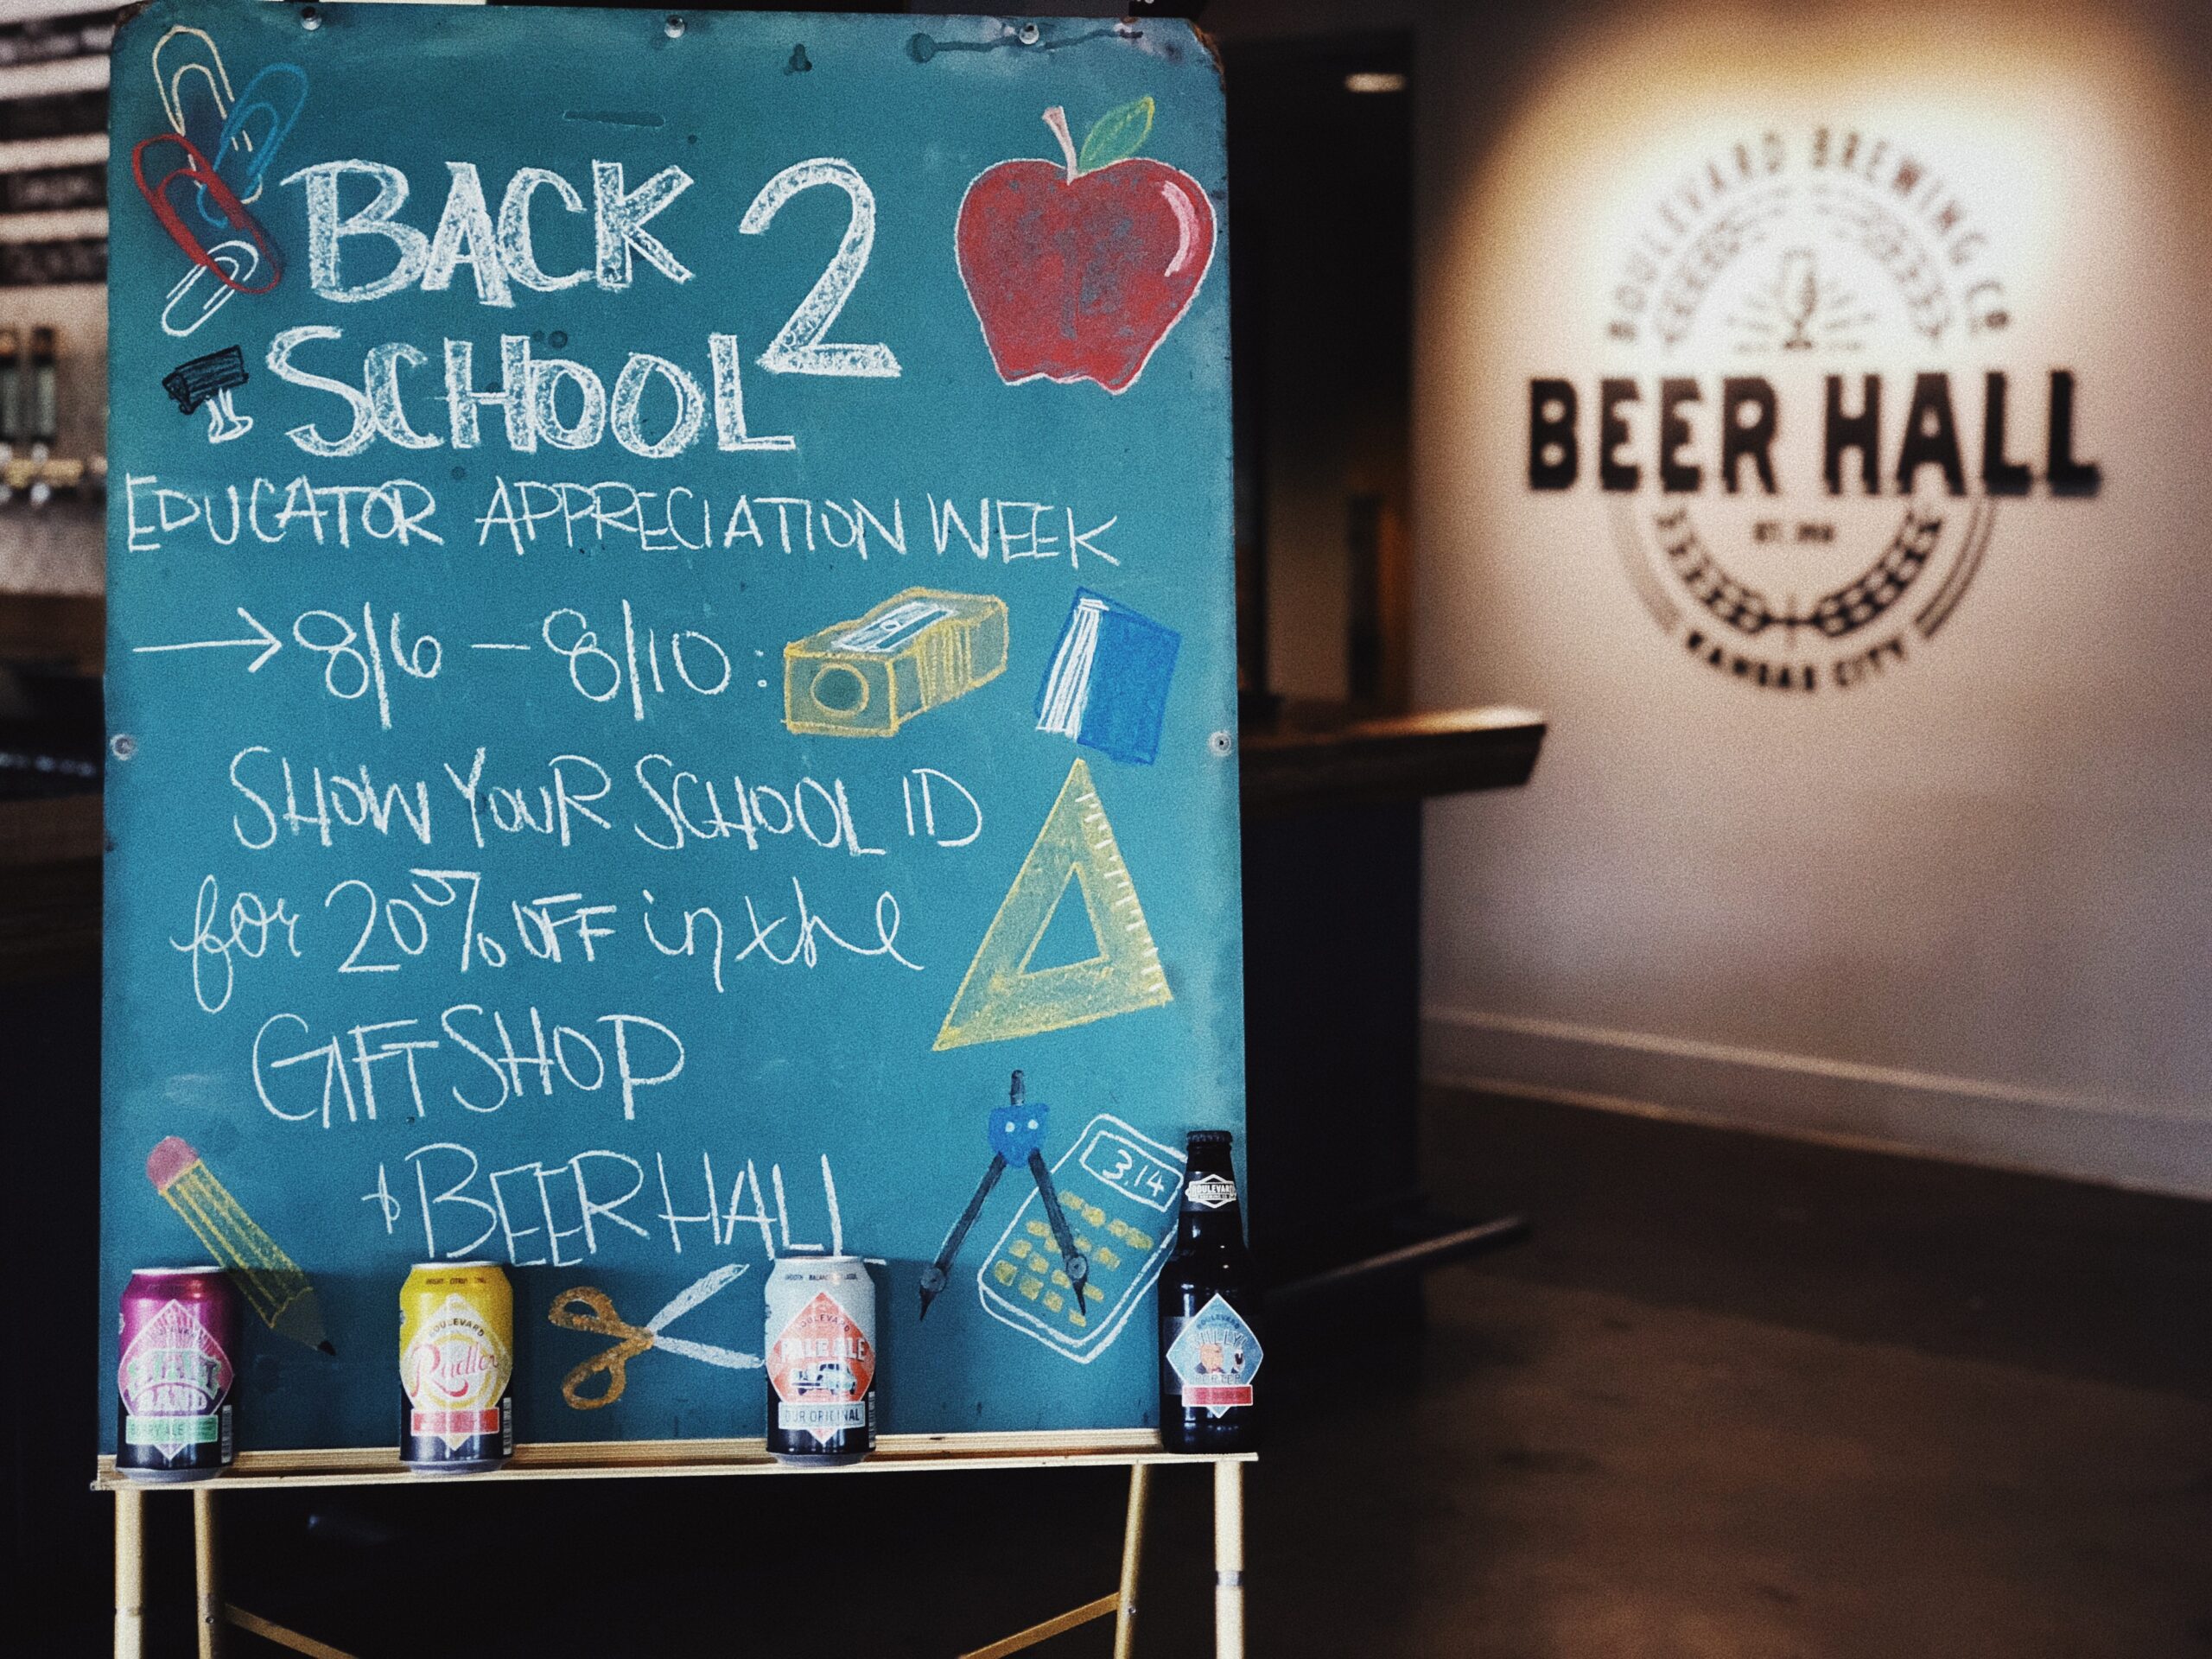 BACK 2
SCHOOL
EDUCATOR APPRECIATION WEEK
→ 8/6 – 8/10:
SHOW YOUR SCHOOL ID
for 20% OFF in the
GIFT SHOP
+ BEER HALL
3.14
BOULEVARD
BAND
BERRY ALE
BOULEVARD
Radler
BOULEVARD
PALE ALE
OUR ORIGINAL
BOULEVARD
BOULEVARD
BULLY!
PORTER
BOULEVARD BREWING CO
BEER HALL
KANSAS CITY